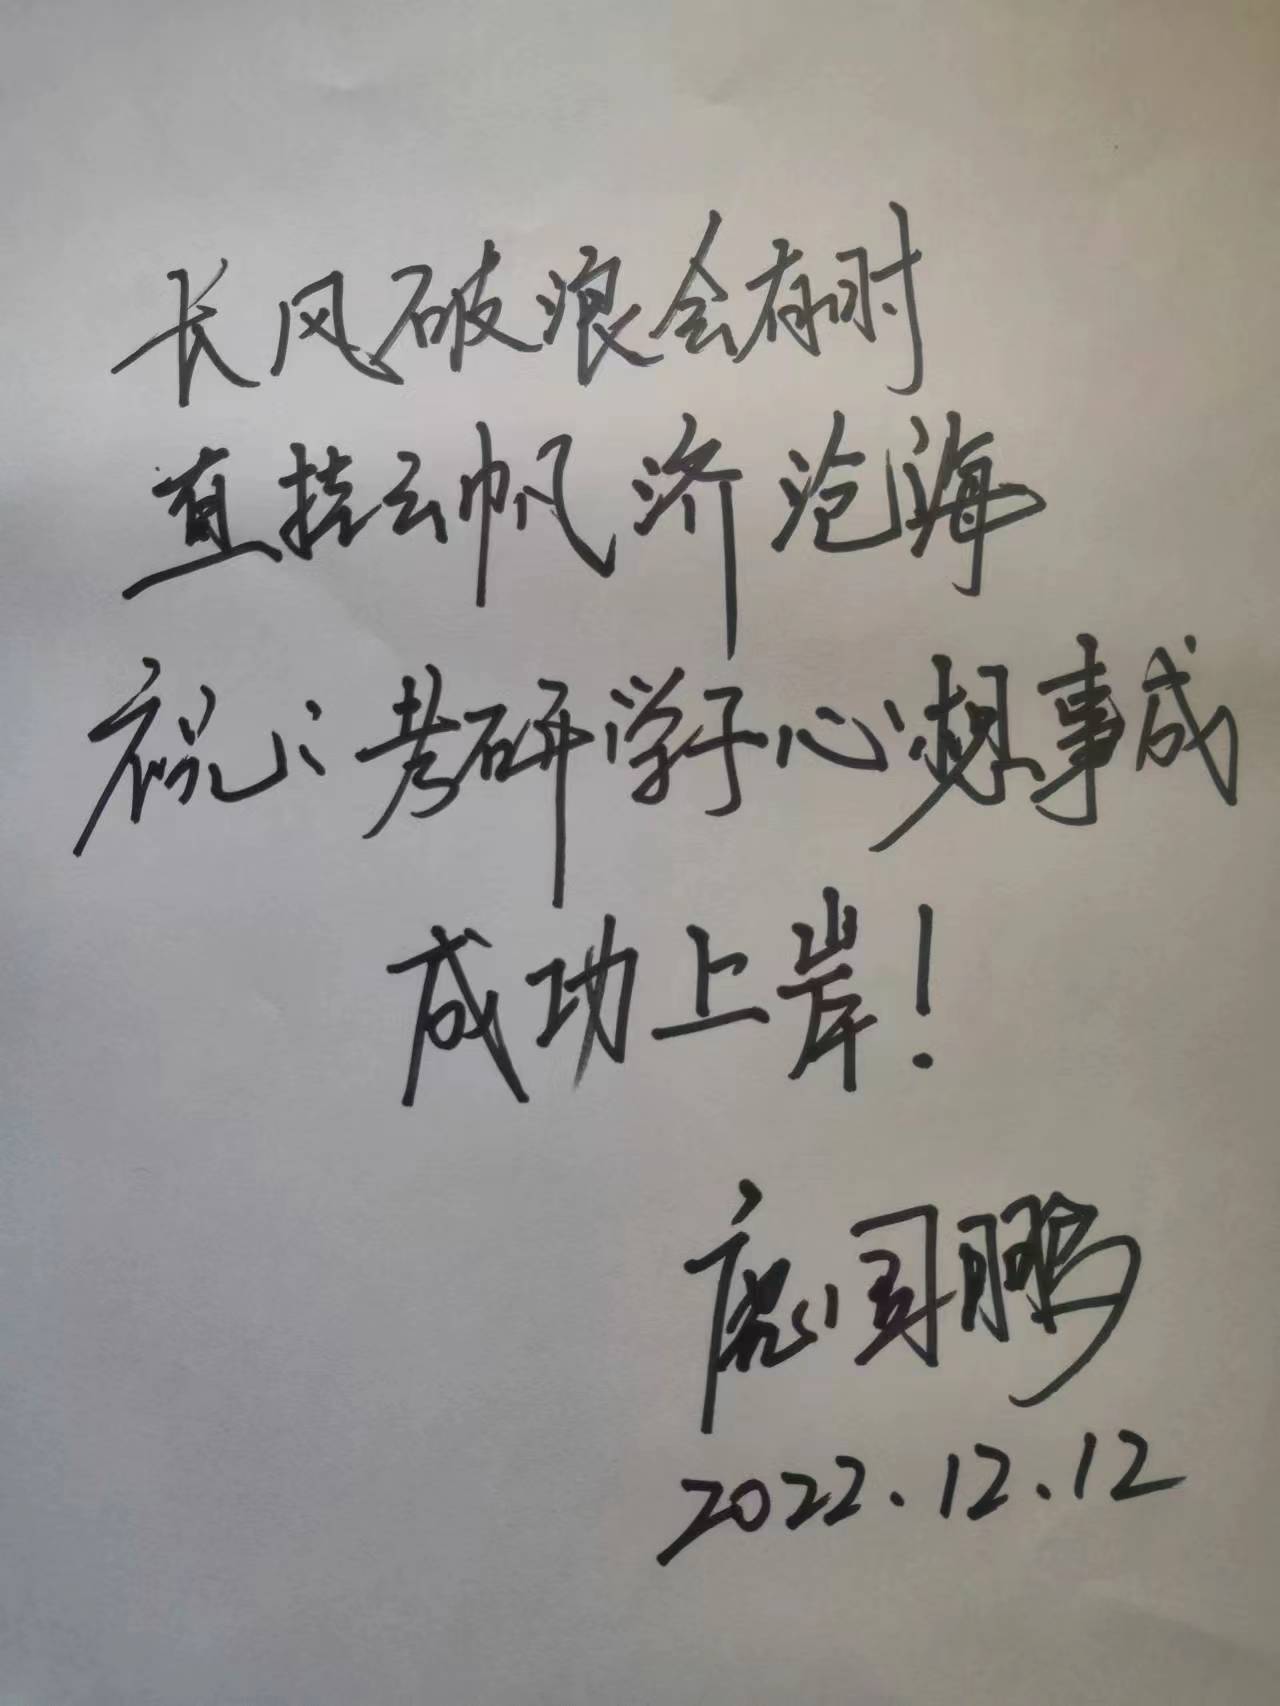 长风破浪会有时
直挂云帆济沧海
祝:考研学子心想事成
成功上岸!
鹏
2022.12.12